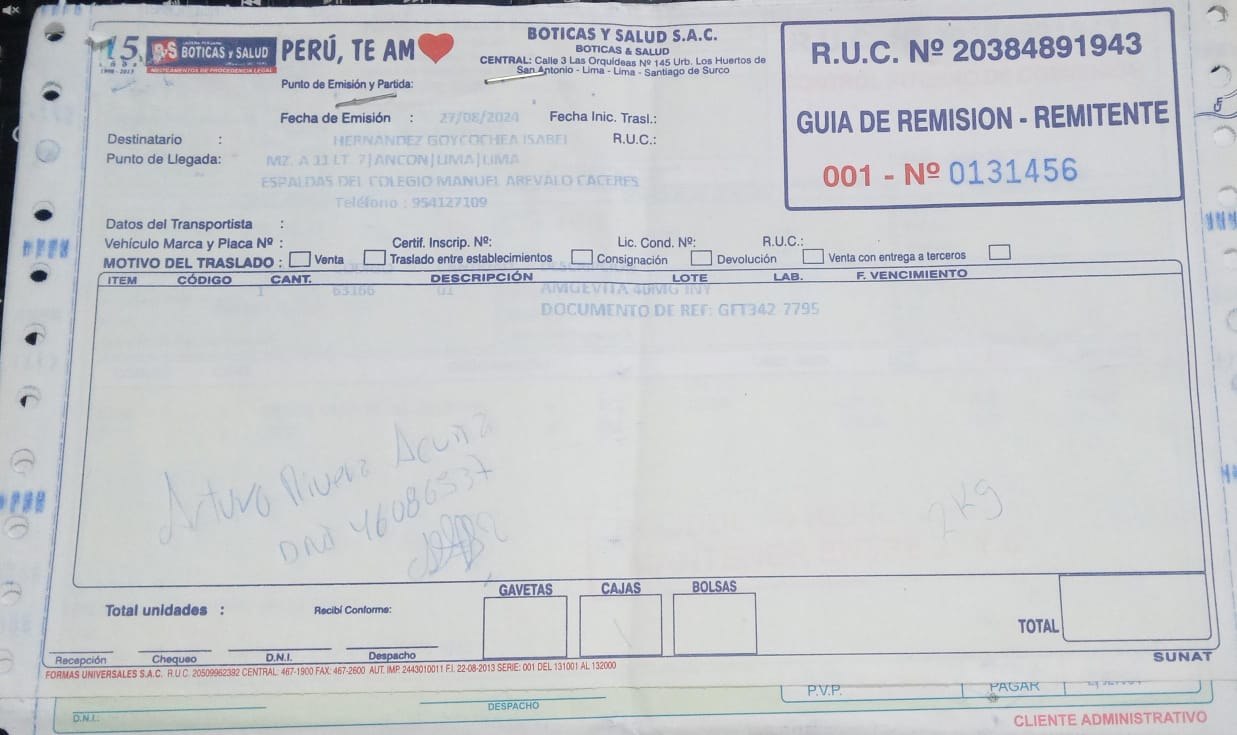 15 BS BOTICAS y SALUD PERÚ, TE AM
1998 - 2013 MEDICAMENTOS DE PROCEDENCIA LEGAL
BOTICAS Y SALUD S.A.C.
BOTICAS & SALUD
CENTRAL: Calle 3 Las Orquídeas Nº 145 Urb. Los Huertos de
San Antonio - Lima - Lima - Santiago de Surco
R.U.C. Nº 20384891943
GUIA DE REMISION - REMITENTE
001 - Nº 0131456
Punto de Emisión y Partida:
Fecha de Emisión : 27/08/2024 Fecha Inic. Trasl.:
Destinatario : HERNANDEZ GOYCOCHEA ISABEL R.U.C.:
Punto de Llegada: MZ. A 11 LT. 7|ANCON|LIMA|LIMA
ESPALDAS DEL COLEGIO MANUEL AREVALO CACERES
Teléfono : 954127109
Datos del Transportista :
Vehículo Marca y Placa Nº : Certif. Inscrip. Nº: Lic. Cond. Nº: R.U.C.:
MOTIVO DEL TRASLADO : Venta Traslado entre establecimientos Consignación Devolución Venta con entrega a terceros
ITEM CÓDIGO CANT. DESCRIPCIÓN LOTE LAB. F. VENCIMIENTO
1 63166 U1 AMGEVITA 40MG INY
DOCUMENTO DE REF: GFT342 7795
Arturo Rivera Acuña
DNI 46086537
2Kg
GAVETAS CAJAS BOLSAS
Total unidades : Recibí Conforme:
TOTAL
Recepción Chequeo D.N.I. Despacho
SUNAT
FORMAS UNIVERSALES S.A.C. R.U.C. 20509962392 CENTRAL: 467-1900 FAX: 467-2600 AUT. IMP. 2443010011 F.I. 22-08-2013 SERIE: 001 DEL 131001 AL 132000
P.V.P. PAGAR
D.N.I.: DESPACHO
CLIENTE ADMINISTRATIVO